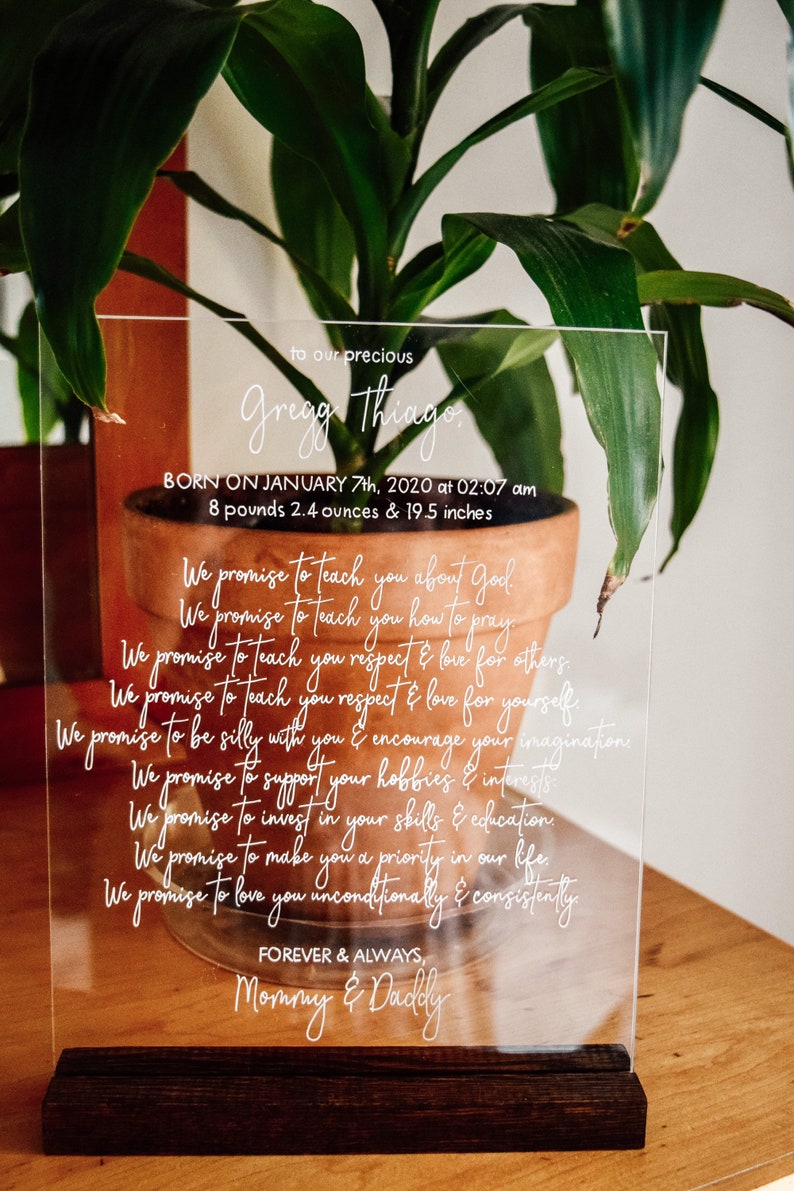 to our precious
Gregg Thiago,
BORN ON JANUARY 7th, 2020 at 02:07 am
8 pounds 2.4 ounces & 19.5 inches
We promise to teach you about God.
We promise to teach you how to pray.
We promise to teach you respect & love for others.
We promise to teach you respect & love for yourself.
We promise to be silly with you & encourage your imagination.
We promise to support your hobbies & interests.
We promise to invest in your skills & education.
We promise to make you a priority in our life.
We promise to love you unconditionally & consistently.
FOREVER & ALWAYS,
Mommy & Daddy